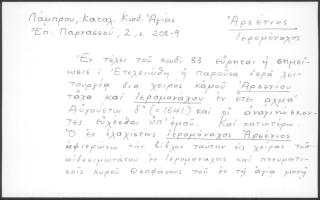 Λάμπρου, Καταλ. Κωδ. Ἁγίας
Ἐπ. Παρνασσοῦ, 2, σ. 208-9
Ἀρσένιος
ἱερομόναχος
Ἐν τέλει τοῦ κωδ. 83 εὕρηται ἡ σημεί-
ωσις: Ἐτελειώθη ἡ παροῦσα ἱερὰ λει-
τουργία δια χειρος κἀμοῦ Ἀρσενίου
τάχα καὶ ἱερομονάχου ἐν ἔτει αχμα΄
Αὐγούστω δ΄ (=1641) καὶ οἱ ἀναγινώσκον-
τες εὔχεσθαι ὑπ' ἐμοῦ. Καὶ κατωτέρω
Ὁ ἐν ἐλαχίστοις ἱερομόναχος Ἀρσένιος
ἀφιερώνω τὴν βίβλον ταύτην εἰς χεῖρας τοῦ
αἰδεσιμωτάτου ἐν ἱερομονάχοις καὶ πνευματι-
κοῖς κυροῦ Θεοφάνους τοῦ ἐν τῇ ἁγίᾳ μονῇ